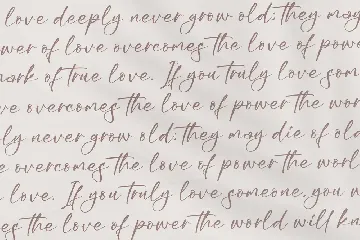 love deeply never grow old; they may
wer of love overcomes the love of powe
mark of true love. If you truly love som
ve overcomes the love of power the wor
ly never grow old; they may die of old
e overcomes the love of power the worl
love. If you truly love someone, you w
es the love of power the world will kn